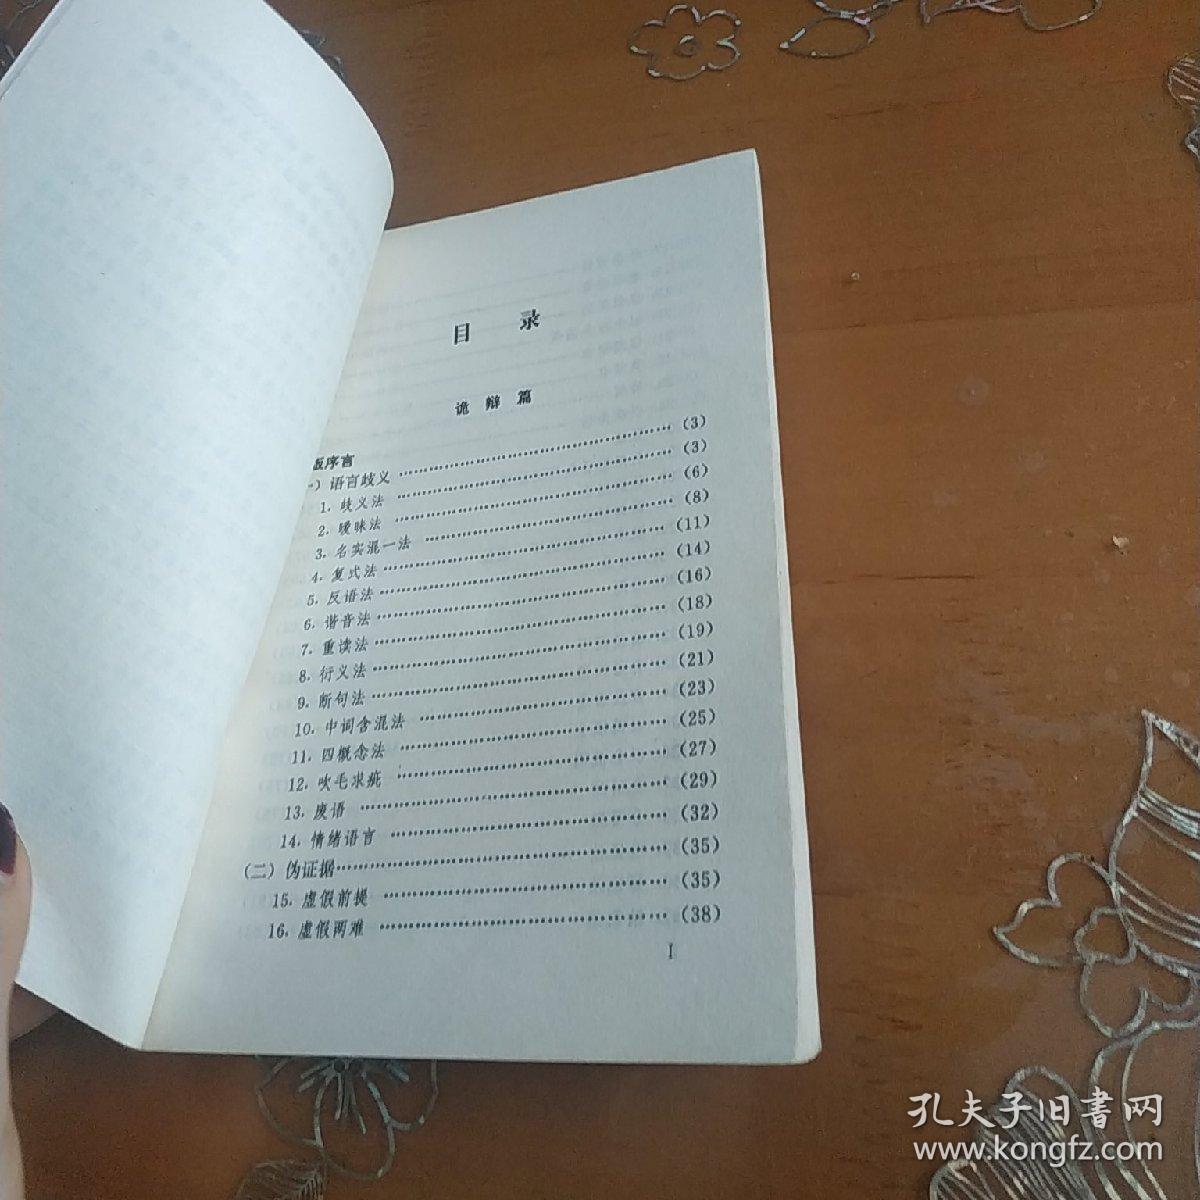 目 录
诡 辩 篇
版序言
一）语言歧义 …… (3)
1. 歧义法 …… (3)
2. 暧昧法 …… (6)
3. 名实混一法 …… (8)
4. 复式法 …… (11)
5. 反语法 …… (14)
6. 谐音法 …… (16)
7. 重读法 …… (18)
8. 衍义法 …… (19)
9. 断句法 …… (21)
10. 中词含混法 …… (23)
11. 四概念法 …… (25)
12. 吹毛求疵 …… (27)
13. 废语 …… (29)
14. 情绪语言 …… (32)
（二）伪证据 …… (35)
15. 虚假前提 …… (35)
16. 虚假两难 …… (38)
I
孔夫子旧書网
www.kongfz.com